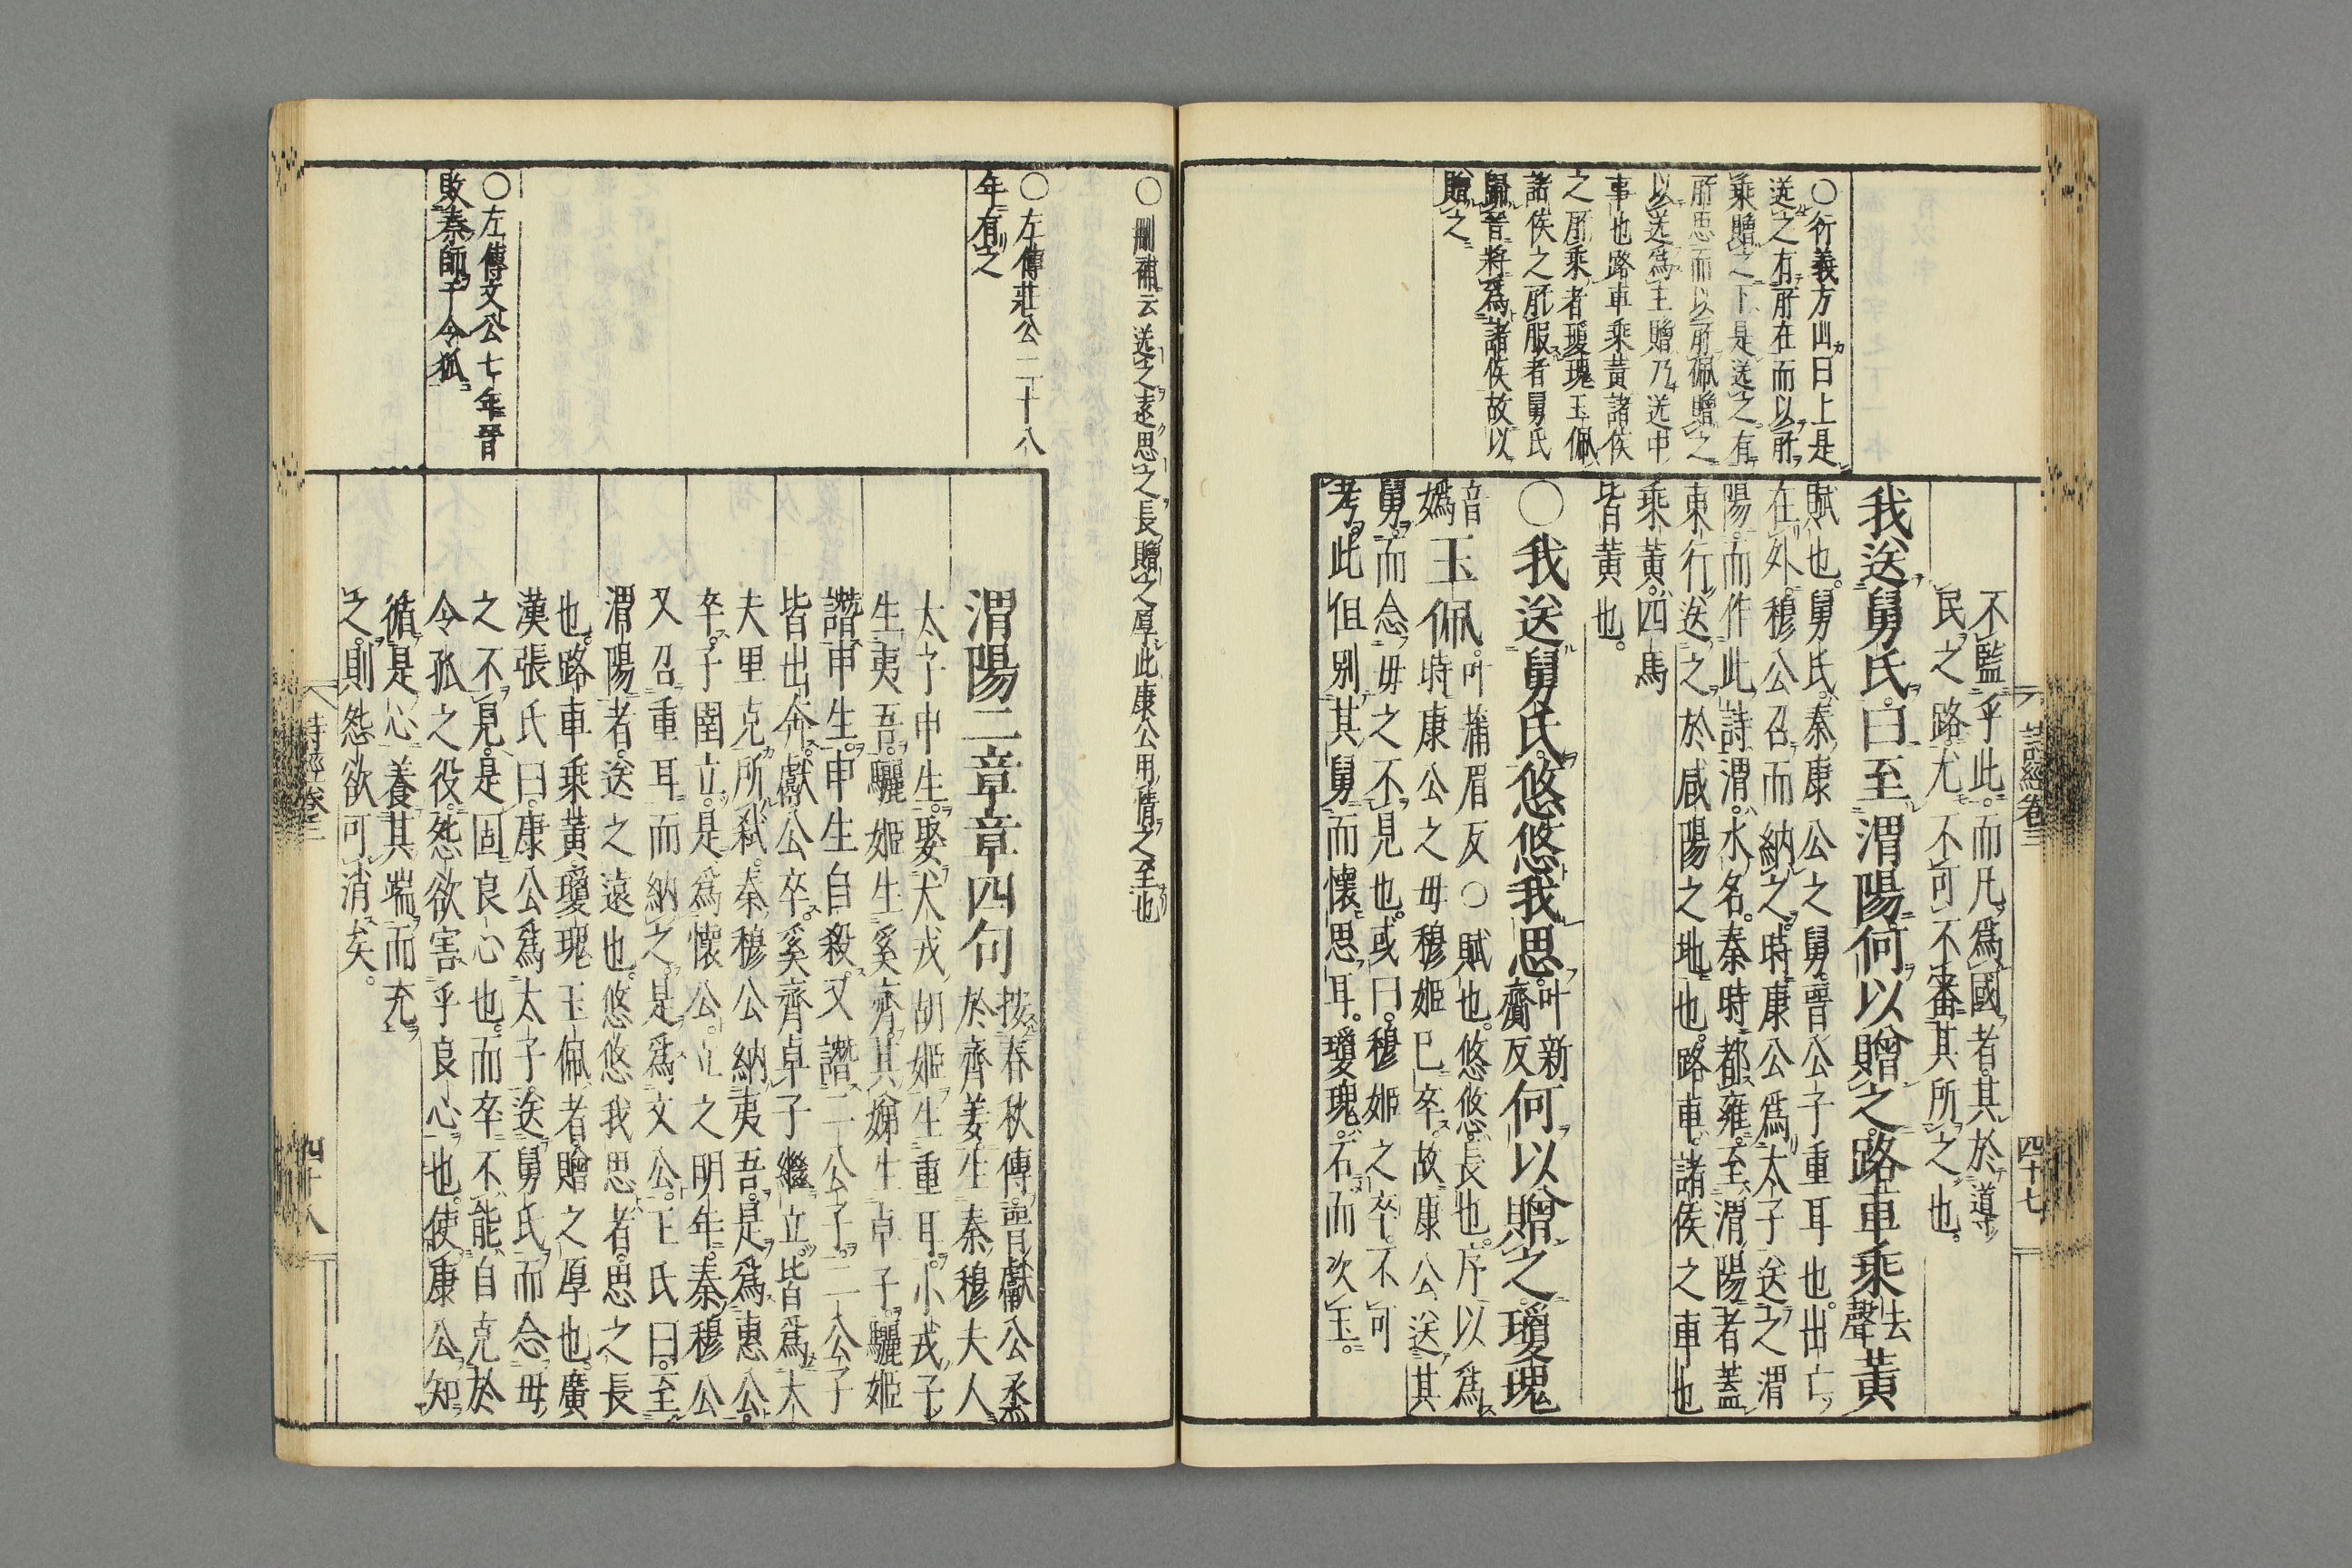 不監乎此。而凡爲國者。其於導
民之路。尤不可不審其所之也。
我送舅氏。曰至渭陽。何以贈之。路車乘去聲黃
賦也。舅氏。秦康公之舅。晉公子重耳也。出亡
在外。穆公召而納之。時康公爲太子。送之渭
陽。而作此詩。渭。水名。秦時都雍。至渭陽者。蓋
東行送之於咸陽之地也。路車。諸侯之車也
乘黃。四馬
皆黃也。
○我送舅氏。悠悠我思。叶新齎反何以贈之。瓊瑰
音媯玉佩。叶蒲眉反○賦也。悠悠。長也。序以爲
時康公之母穆姬已卒。故康公送其
舅。而念母之不見也。或曰。穆姬之卒。不可
考。此但別其舅。而懷思耳。瓊瑰。石而次玉。
○行義方山曰上是
送之有所在而以所
乘贈之下是送之有
所思而以所佩贈之
以送爲主贈乃送中
事也路車乘黃諸侯
之所乘者瓊瑰玉佩
諸侯之所服者舅氏
歸晉將爲諸侯故以
贈之
詩經卷三
四十七
○刪補云送之遠思之長贈之厚此康公用情之至也
○左傳莊公二十八
年有之
○左傳文公七年晉
敗秦師于令狐
渭陽二章章四句
按春秋傳。晉獻公烝
於齊姜。生秦穆夫人
太子申生。娶犬戎胡姬。生重耳。小戎子
生夷吾。驪姬生奚齊。其娣生卓子。驪姬
譖申生。申生自殺。又譖二公子。二公子
皆出奔。獻公卒。奚齊卓子繼立。皆爲大
夫里克所弒。秦穆公納夷吾。是爲惠公。
卒。子圉立。是爲懷公。立之明年。秦穆公
又召重耳而納之。是爲文公。王氏曰。至
渭陽者。送之遠也。悠悠我思者。思之長
也。路車乘黃。瓊瑰玉佩者。贈之厚也。廣
漢張氏曰。康公爲太子。送舅氏。而念母
之不見。是固良心也。而卒不能自克於
令狐之役。怨欲害乎良心也。使康公知
循是心。養其端。而充
之。則怨欲可消矣。
詩經卷三
四十八